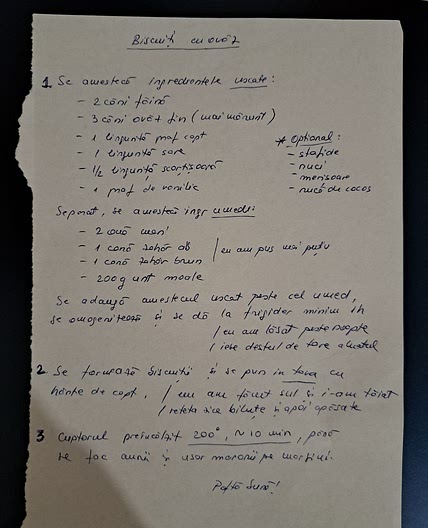 Biscuiți cu ovăz
1. Se amestecă ingredientele uscate:
- 2 căni făină
- 3 căni ovăz fin (mai mărunt)
- 1 linguriță praf copt
- 1 linguriță sare
- 1/2 linguriță scorțișoară
- 1 praf de vanilie
* Opțional:
- stafide
- nuci
- merișoare
- nucă de cocos
Separat, se amestecă ingr umede:
- 2 ouă mari
- 1 cană zahăr alb
- 1 cană zahăr brun
/ eu am pus mai puțin
- 200g unt moale
Se adaugă amestecul uscat peste cel umed,
se omogenizează și se dă la frigider minim 1h
/ eu am lăsat peste noapte
/ iese destul de tare aluatul
2 Se formează biscuiți și se pun în tava cu
hârtie de copt. / eu am făcut sul și i-am tăiat
/ rețeta zice biluțe și apoi apăsate
3 Cuptorul preîncălzit 200°, ~ 10 min, până
se fac aurii și ușor maronii pe margini.
Poftă Bună!